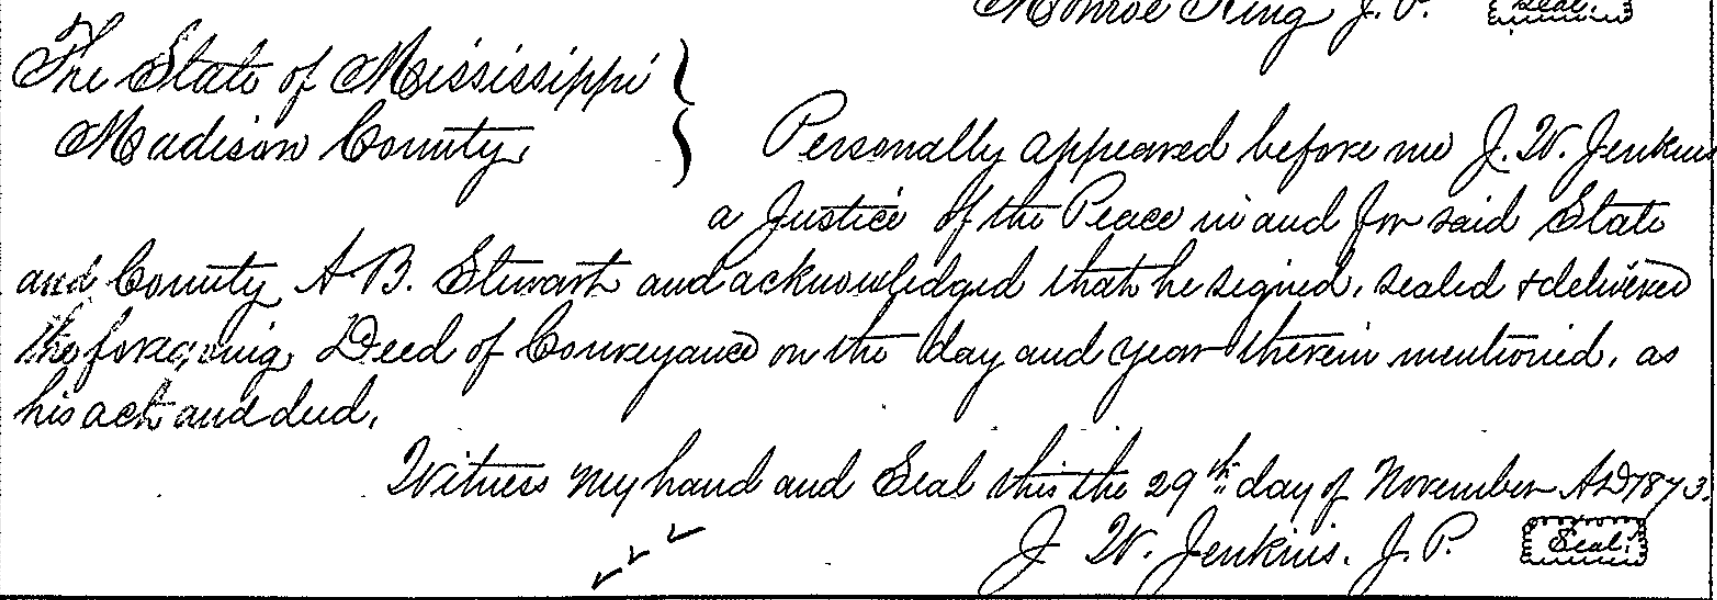 Monroe King J. P. Seal.
The State of Mississippi
Madison County, Personally appeared before me J. W. Jenkins
a Justice of the Peace in and for said State
and County A B. Stewart and acknowledged that he signed, sealed & delivered
the foregoing Deed of Conveyance on the day and year therein mentioned, as
his act and deed.
Witness my hand and Seal this the 29th day of November AD 1873.
J W. Jenkins. J. P. Seal.